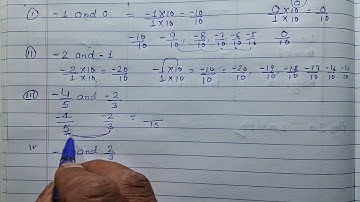 (i) -1 and 0 = -1×10/1×10 = -10/10 0×10/1×10 = 0/10
-10/10 -9/10, -8/10, -7/10, -6/10 -5/10 0/10
(ii) -2 and -1
-2×10/1×10 = -20/10 -1×10/1×10 = -10/10 = -20/10, -19/10, -18/10, -17/10
(iii) -4/5 and -2/3
-4/5 -2/3 = /15
iv and 2/3